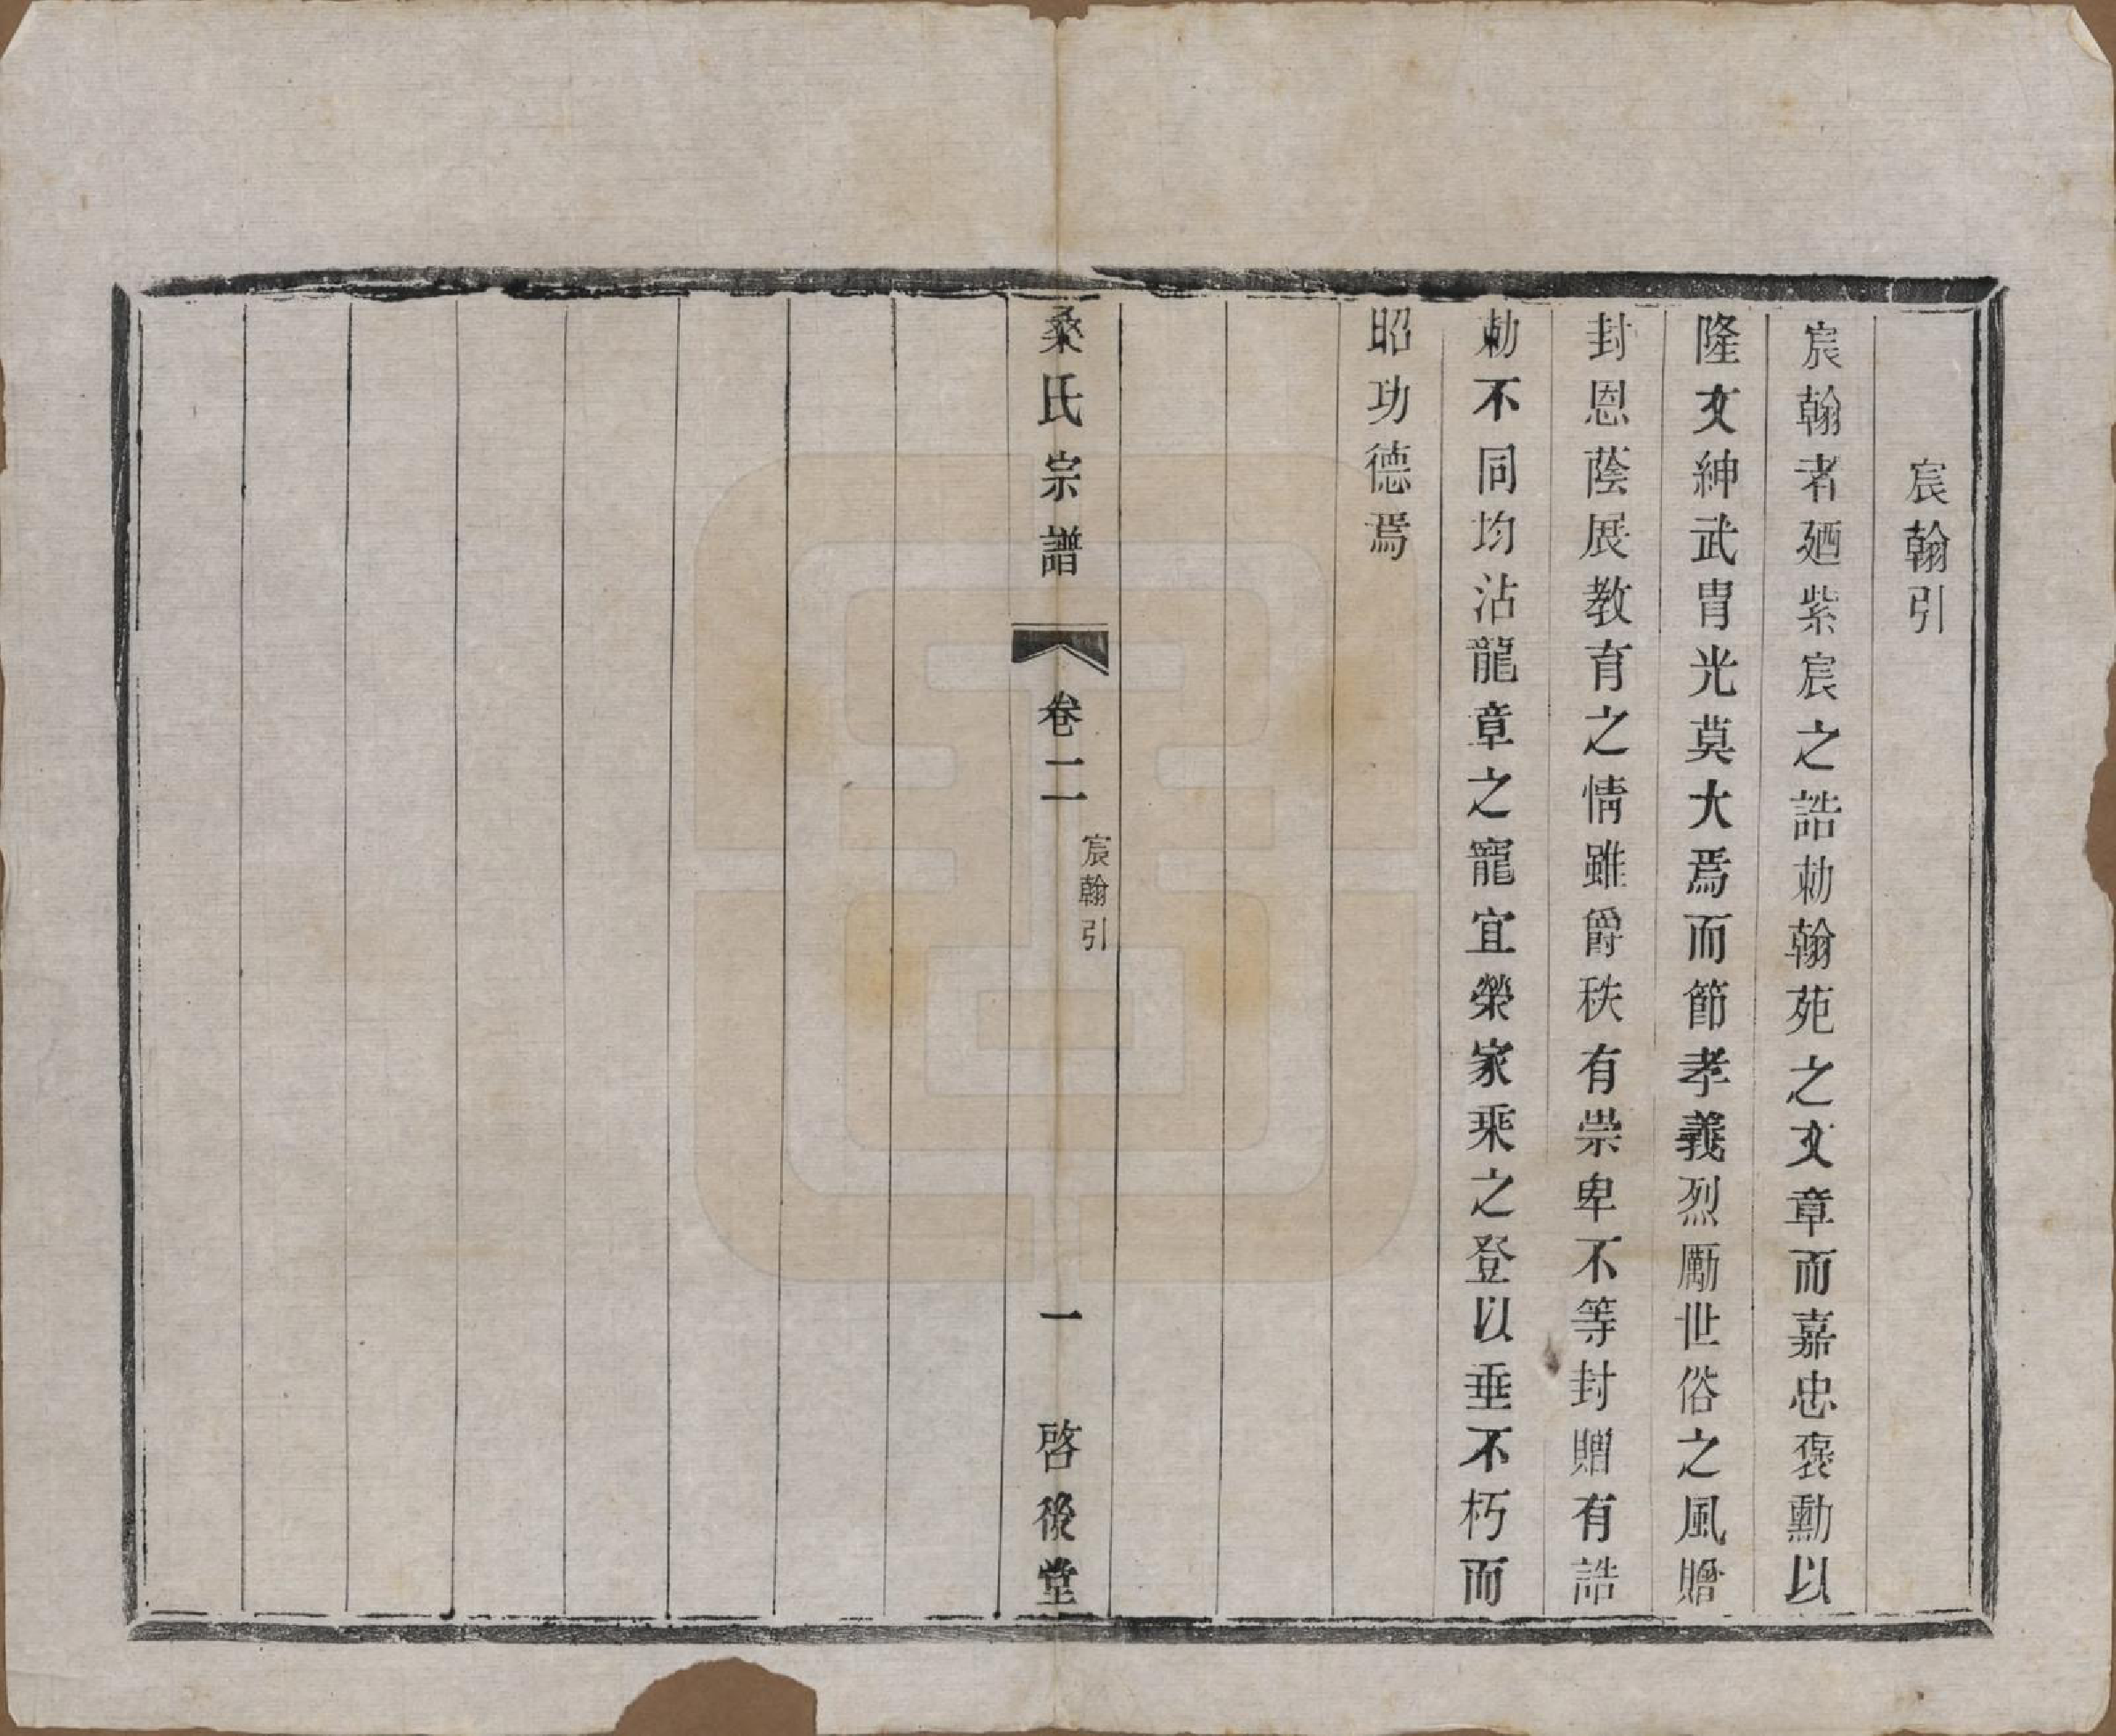 宸翰引
宸翰者廼紫宸之誥勅翰苑之文章而嘉忠褒勳以
隆文紳武胄光莫大焉而節孝義烈勵世俗之風贈
封恩蔭展教育之情雖爵秩有崇卑不等封贈有誥
勅不同均沾龍章之寵宜榮家乘之登以垂不朽而
昭功德焉
桑氏宗譜
卷二
宸翰引
一
啓後堂